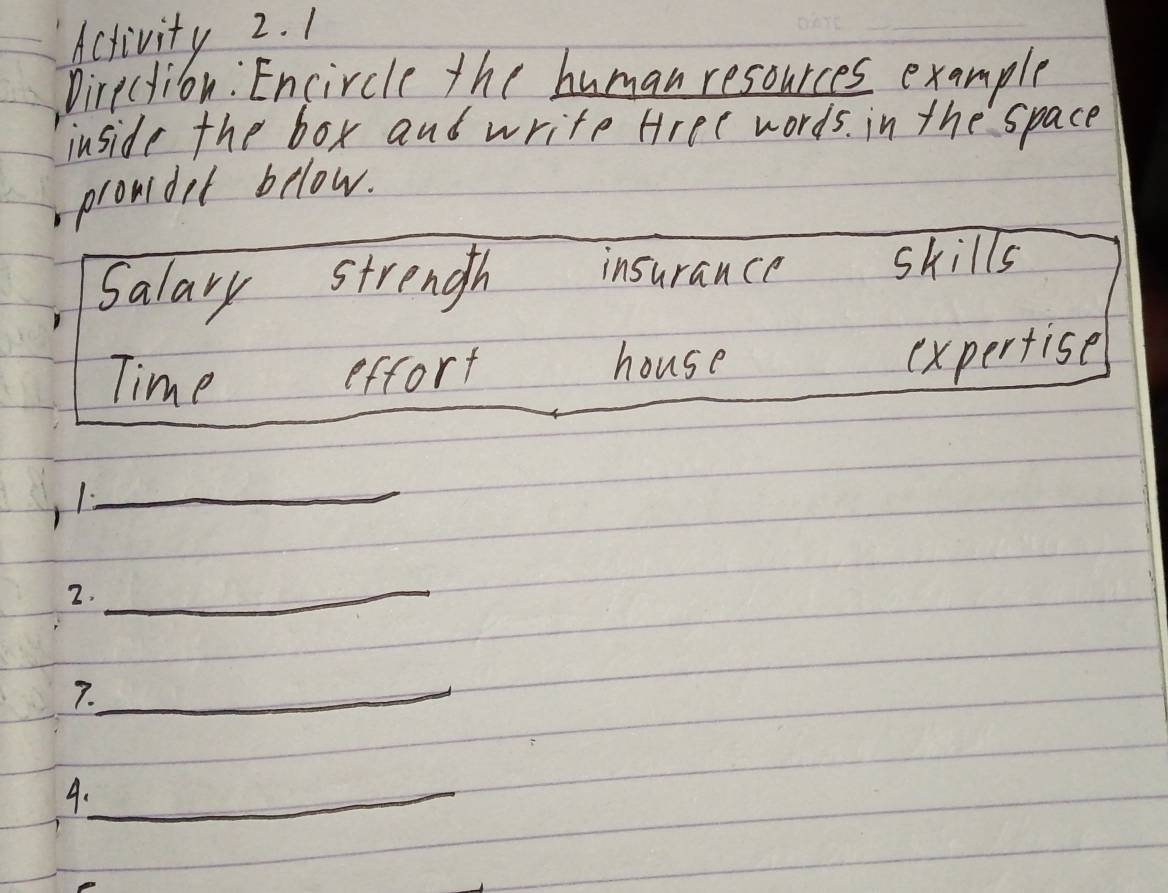 Activity 2.1
Direction: Encircle the human resources example
inside the box and write three words. in the space
provided below.
Salary strength insurance skills
Time effort house expertise
1.
2.
3.
4.